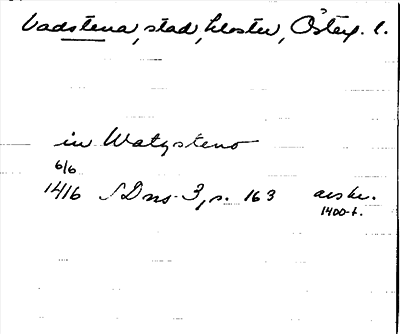 Vadstena, stad, kloster, Österg. l.
in Watzsteno
6/6
1416 SDns 3, s. 163 avskr.
1400-t.